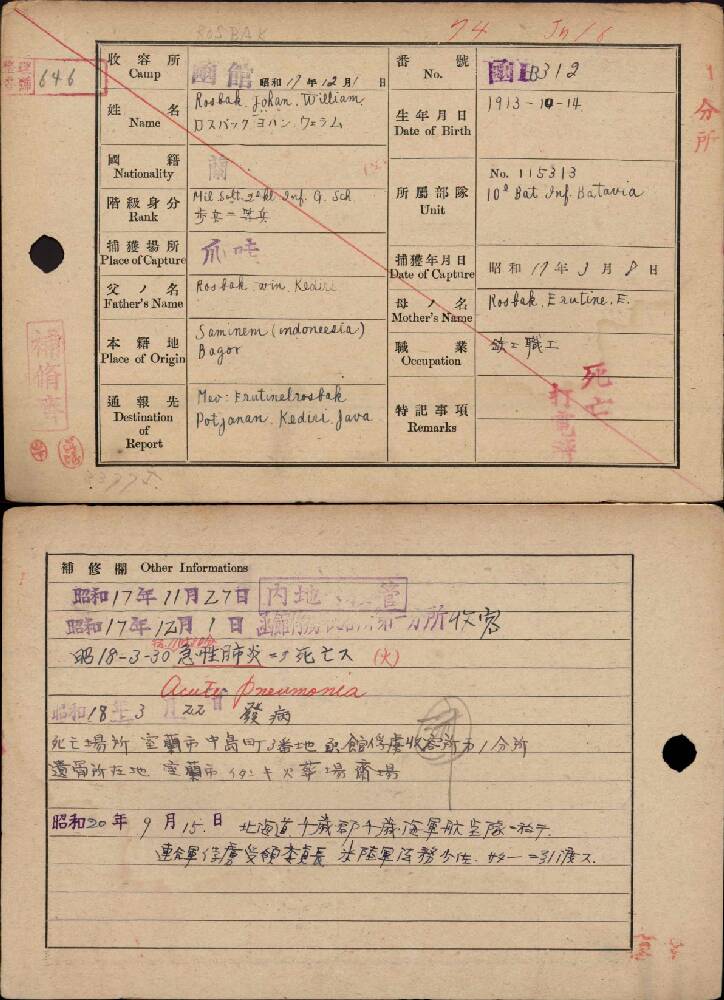 ROSBAK
74
646
收容所 Camp
函館 昭和17年12月1日
番號 No.
函IB312
1分所
姓名 Name
Rosbak, Johan, William,
ロスバック ヨハン、ウェラム
生年月日 Date of Birth
1913-10-14
國籍 Nationality
蘭
階級身分 Rank
Mil Solt. 2e kl Inf. G. Sch
歩兵二等兵
所屬部隊 Unit
No. 115313
10e Bat Inf. Batavia
捕獲場所 Place of Capture
爪哇
捕獲年月日 Date of Capture
昭和17年3月8日
父ノ名 Father's Name
Rosbak win, Kediri
母ノ名 Mother's Name
Rosbak, Erutine, E.
本籍地 Place of Origin
Saminem (indoneesia)
Bagor
職業 Occupation
職工
通報先 Destination of Report
Mev: Erutinelrosbak
Potjanan, Kediri, Java
特記事項 Remarks
死亡
打電済
補修斉
補修欄 Other Informations
昭和17年11月27日 内地
昭和17年12月1日 函館俘虜収容所第一分所 収容
昭18-3-30 急性肺炎ニテ死亡ス (火)
Acute Pneumonia
昭和18年3月22日 發病
死亡場所 室蘭市中島町3番地 函館俘虜收容所第1分所
遺骨所在地 室蘭市 火葬場齋場
昭和20年9月15日 北海道千歳郡千歳海軍航空隊ニ於テ
連合軍俘虜受領委員長 米陸軍 少佐 引渡ス